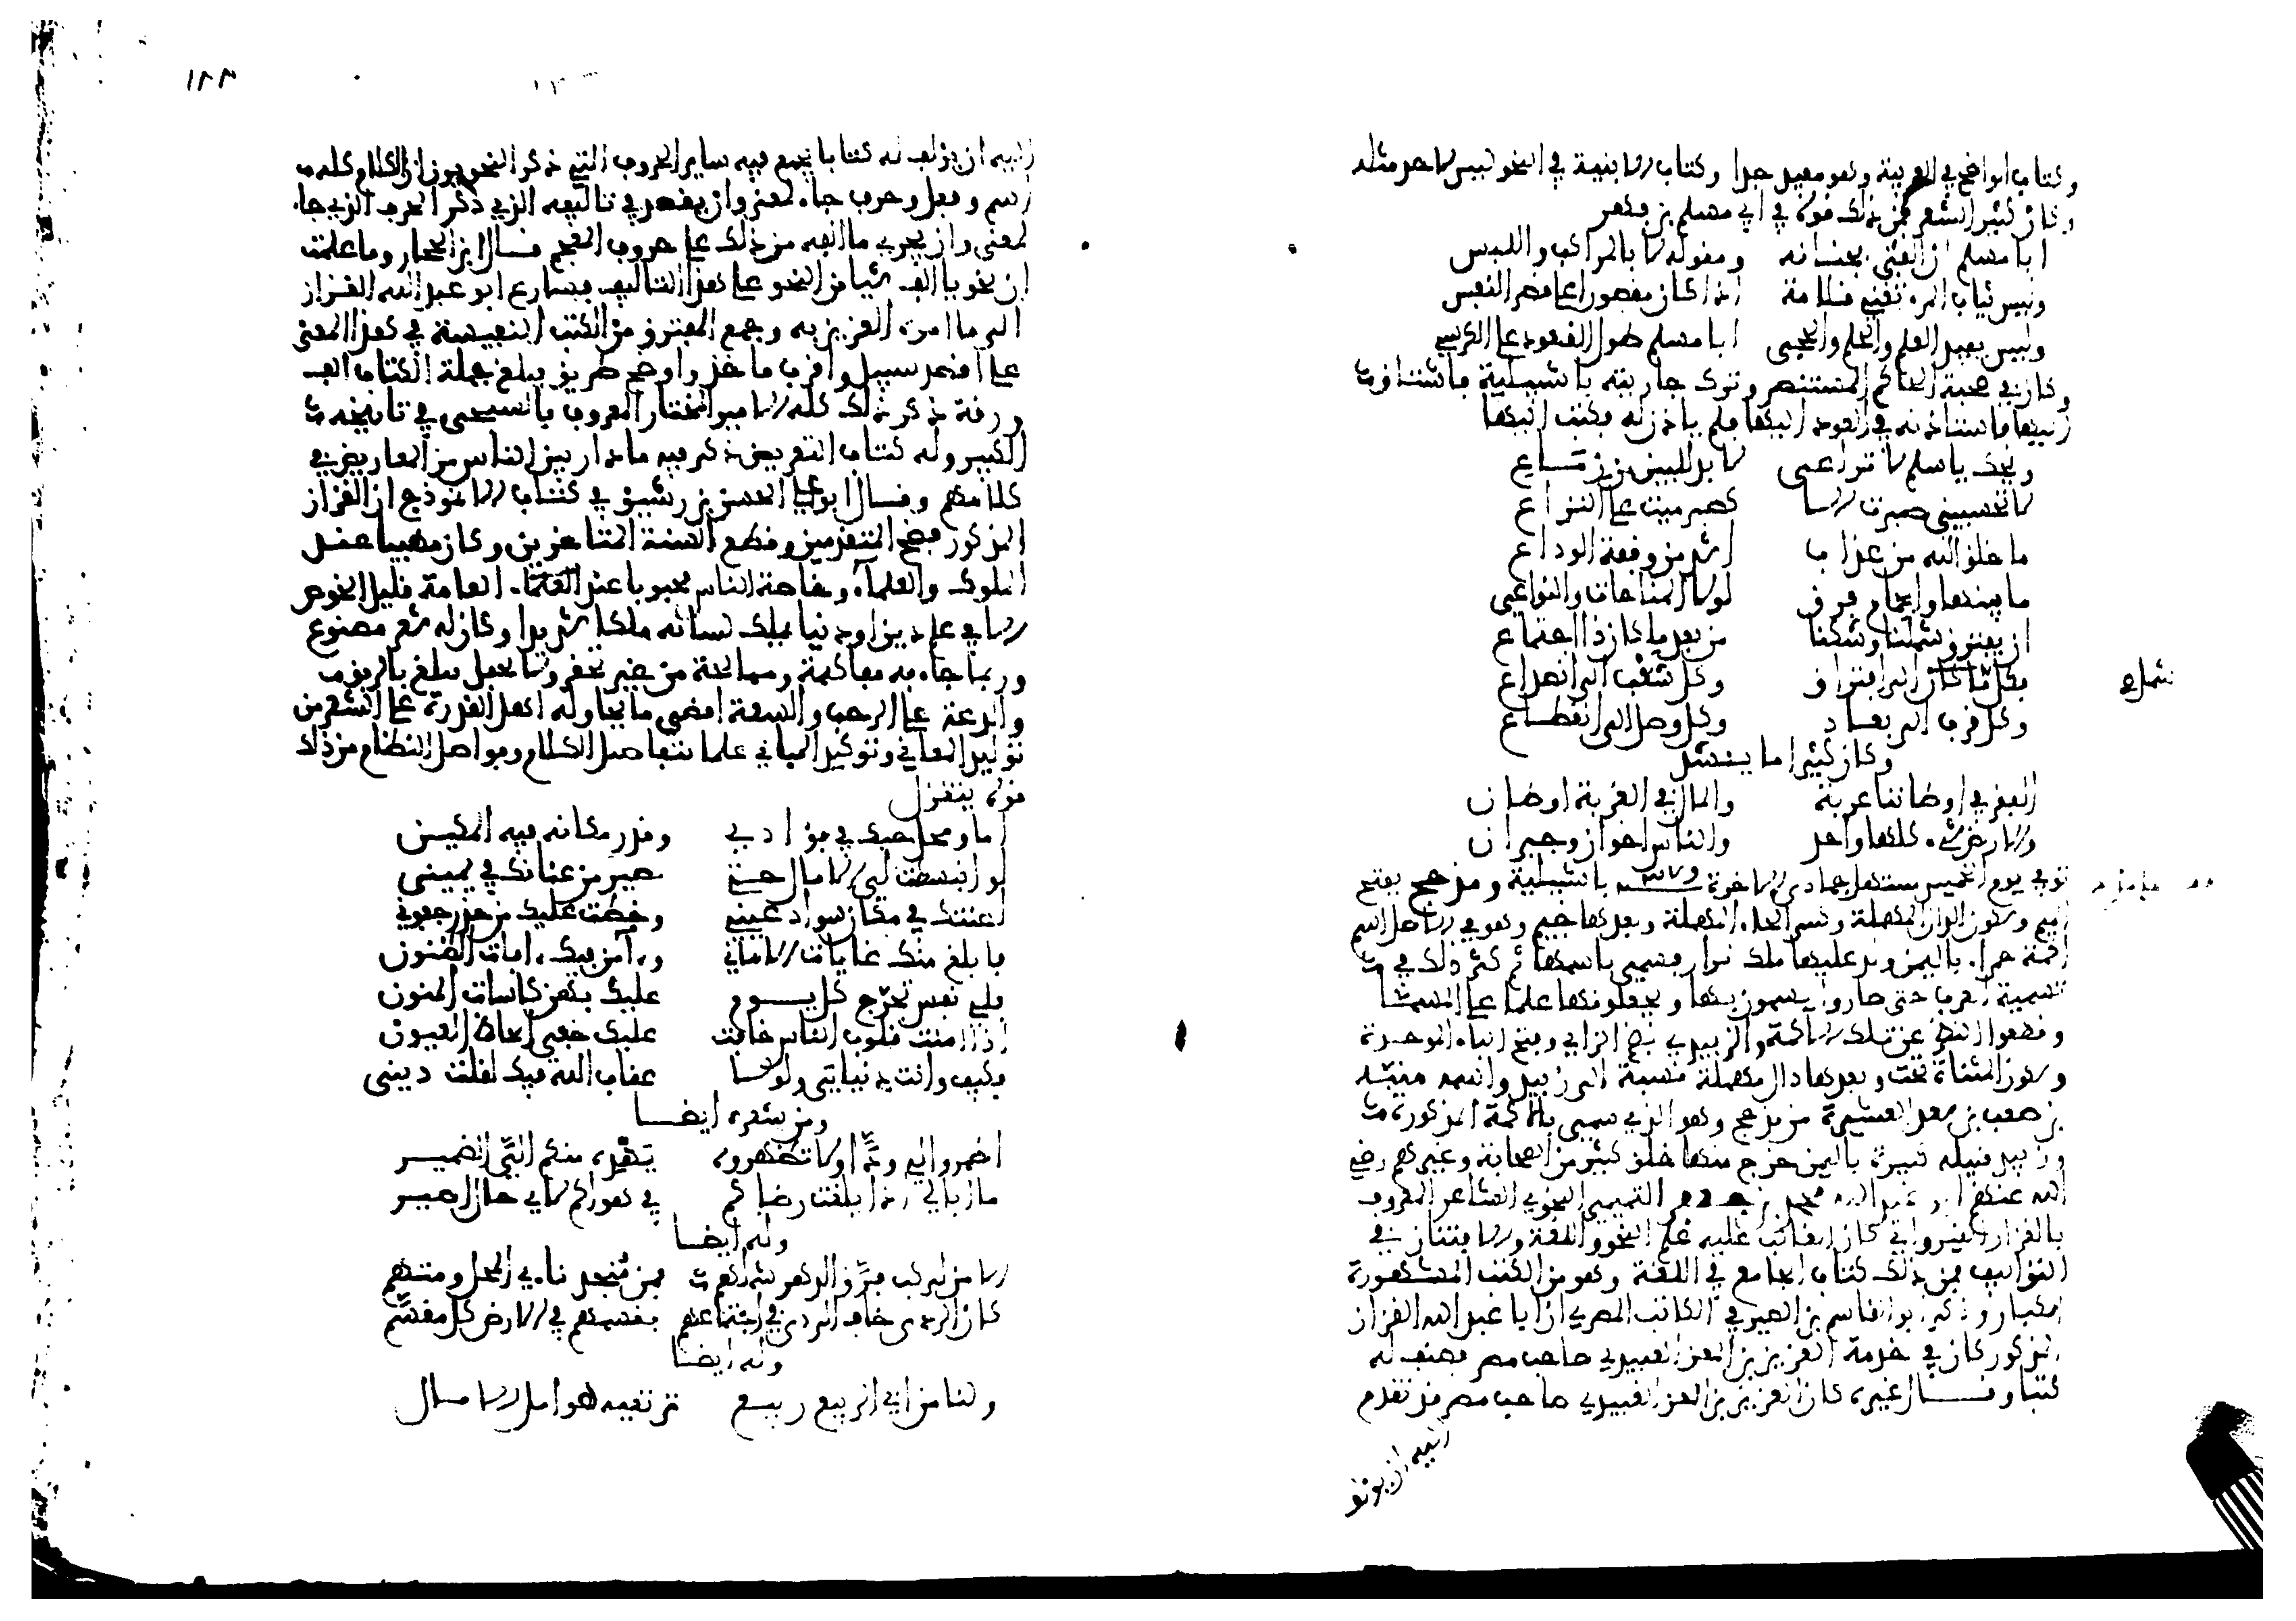 وكتاب الواضح في العربية وهو مفيد جدا وكتاب الابنية في النحو ليس لاحد مثله
وكان كثير الشعر فمن ذلك قوله في ابي مسلم بن فهر
ابا مسلم ان الفتى بجنانه ومقوله لا بالمراكب واللبس
وليس ثياب المرء تغني قلامة اذا كان مقصورا على قصر النفس
وليس يفيد العلم والحلم والحجى ابا مسلم طول القعود على الكرسي
وكان في صحبة الحاكم المستنصر وترك جاريته باشبيلية فاشتاق
اليها فاستاذنه في العود اليها فلم ياذن له فكتب اليها
ويحك يا سلم لا تراعي لا بد للبين من زماع
لا تحسبيني صبرت الا كصبر ميت على النزاع
ما خلق الله من عذاب اشد من وقفة الوداع
ما بينها والحمام فرق لولا المناحات والنواعي
ان يفترق شملنا وشيكا من بعد ما كان ذا اجتماع
فكل شمل الى افتراق وكل شعب الى انصداع
وكل قرب الى بعاد وكل وصل الى انقطاع
وكان كثيرا ما ينشد
الفقر في اوطاننا غربة والمال في الغربة اوطان
والارض شيء كلها واحد والناس اخوان وجيران
توفي يوم الخميس مستهل جمادى الاخرة باشبيلية ومذحج بفتح
الميم وسكون الذال المهملة وكسر الحاء المهملة وبعدها جيم وهو في الاصل اسم
اكمة حمراء باليمن ولد عليها مالك بن ادد فسمي باسمها ثم كثر ذلك في
تسمية العرب حتى صاروا يسمون بها ويجعلونها علما على المسمى
وقطعوا النظر عن تلك الاكمة والزبيدي بضم الزاي وفتح الباء الموحدة
وسكون المثناة تحت وبعدها دال مهملة نسبة الى زبيد واسمه منبه
بن صعب بن سعد العشيرة من مذحج وهو الذي سمي بالاكمة المذكورة
وزبيد قبيلة كبيرة باليمن خرج منها خلق كثير من الصحابة وغيرهم رضي
الله عنهم ابو عبد الله محمد بن جعفر التميمي النحوي الشاعر المعروف
بالقزاز القيرواني كان الغالب عليه علم النحو واللغة والافتنان في
التواليف فمن ذلك كتاب الجامع في اللغة وهو من الكتب المشهورة
المختار وذكر ابو القاسم بن الصيرفي الكاتب المصري ان ابا عبد الله القزاز
المذكور كان في خدمة العزيز بن المعز العبيدي صاحب مصر فصنف له
كتبا وقال غيره كان العزيز بن المعز العبيدي صاحب مصر قد تقدم
اليه ان يولف
اليه ان يؤلف له كتابا يجمع فيه ساير الحروف التي ذكر النحويون ان الكلام كله
اسم وفعل وحرف جاء لمعنى وان يقصد في تاليفه الذي ذكر الحرف الذي جاء
لمعنى وان يجري ما الفه من ذلك على حروف المعجم قال ابن الجزار وما علمت
ان نحويا الف شيا من النحو على هذا التاليف فسارع ابو عبد الله القزاز
الى ما امره العزيز به وجمع المفترق من الكتب النفيسة في هذا المعنى
على اقصد سبيل واقرب ماخذ واوضح طريق فبلغ جملة الكتاب الف
ورقة ذكر ذلك كله الامير المختار المعروف بالمسبحي في تاريخه
الكبير وله كتاب التعريض ذكر فيه ما دار بين الناس من المعاريض في
كلامهم وقال ابو علي الحسن بن رشيق في كتاب الانموذج ان القزاز
المذكور فضح المتقدمين وقطع السنة المتاخرين وكان مهيبا عند
الملوك والعلماء وخاصة الناس محبوبا عند العامة قليل الخوض
الا في علم دين او دنيا يملك لسانه ملكا شديدا وكان له شعر مصنوع
وربما جاء به مفاكهة وممالحة من غير تحفز ولا تحفل يبلغ بالرفق
والدعة على الرحب والسعة اقصى ما يحاوله اهل القدرة على الشعر من
توليد المعاني وتوكيد المباني علما بتفاصيل الكلام وفواصل النظام من ذلك
قوله يتغزل
اما ومحل حبك في فؤادي وقدر مكانه فيه المكين
لو انبسطت لي الامال حتى تصير من عنانك في يميني
لصنتك في مكان سواد عيني وخطت عليك من حذر جفوني
فابلغ منك غايات الاماني وآمن فيك افات الظنون
فلي نفس تجرع كل يوم عليك بهن كاسات المنون
اذا امنت قلوب الناس خافت عليك خفي الحاظ العيون
وكيف وانت دنياي ولولا عقاب الله فيك لقلت ديني
ومن شعره ايضا
اضمروا لي ودا ولا تظهروه يهده منكم الي الضمير
ما ابالي اذا بلغت رضاكم في هواكم لاي حال اصير
وله ايضا
الا من لركب فرق الدهر شملهم فمن منجد نائي المحل ومتهم
كان الردى خاف الردى في اجتماعهم فقسمهم في الارض كل مقسم
وله ايضا
ولنا من ابي الربيع ربيع ترتعيه هوامل الامال